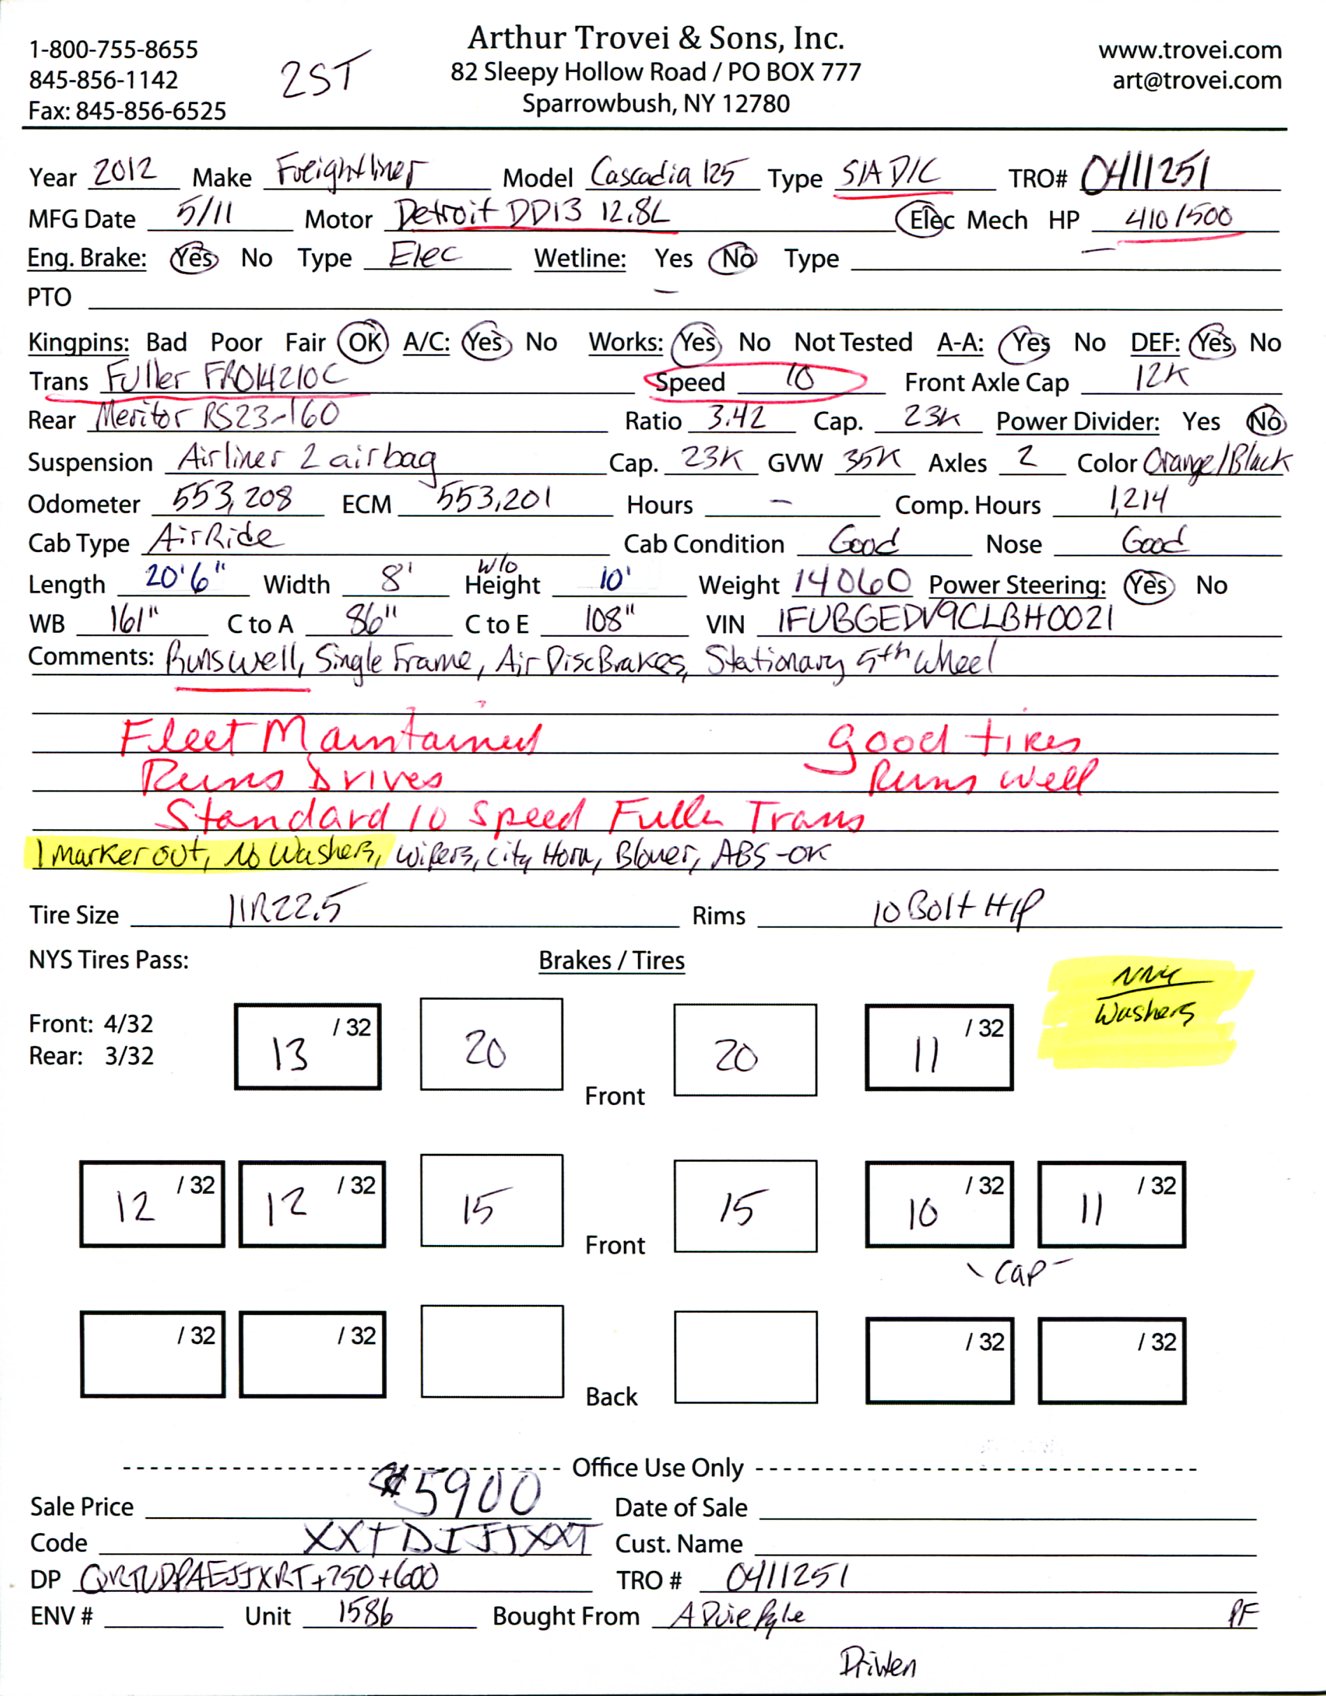 1-800-755-8655
845-856-1142
Fax: 845-856-6525
2ST
Arthur Trovei & Sons, Inc.
82 Sleepy Hollow Road / PO BOX 777
Sparrowbush, NY 12780
www.trovei.com
art@trovei.com
Year 2012 Make Freightliner Model Cascadia 125 Type S/A D/C TRO# 0411251
MFG Date 5/11 Motor Detroit DD13 12.8L Elec Mech HP 410/500
Eng. Brake: Yes No Type Elec Wetline: Yes No Type —
PTO —
Kingpins: Bad Poor Fair OK A/C: Yes No Works: Yes No Not Tested A-A: Yes No DEF: Yes No
Trans Fuller FRO14210C Speed 10 Front Axle Cap 12K
Rear Meritor RS23-160 Ratio 3.42 Cap. 23K Power Divider: Yes No
Suspension Airliner 2 airbag Cap. 23K GVW 35K Axles 2 Color Orange/Black
Odometer 553,208 ECM 553,201 Hours — Comp. Hours 1,214
Cab Type AirRide Cab Condition Good Nose Good
Length 20'6" Width 8' w/o Height 10' Weight 14060 Power Steering: Yes No
WB 161" C to A 86" C to E 108" VIN 1FUBGEDV9CLBH0021
Comments: Runs well, Single Frame, Air Disc Brakes, Stationary 5th Wheel
Fleet Maintained good tires
Runs Drives Runs well
Standard 10 Speed Fuller Trans
1 Marker out, No Washers, Wipers, City Horn, Blower, ABS-OK
Tire Size 11R22.5 Rims 10 Bolt H/P
NYS Tires Pass: Brakes / Tires
NNY
Washers
Front: 4/32
Rear: 3/32
13 /32 20 Front 20 11 /32
12 /32 12 /32 15 Front 15 10 /32 11 /32
- Cap -
/32 /32 Back /32 /32
Office Use Only
Sale Price $5900 Date of Sale
Code XXTDIJJXXT Cust. Name
DP +750+600 TRO # 0411251
ENV # Unit 1586 Bought From PF
Driven